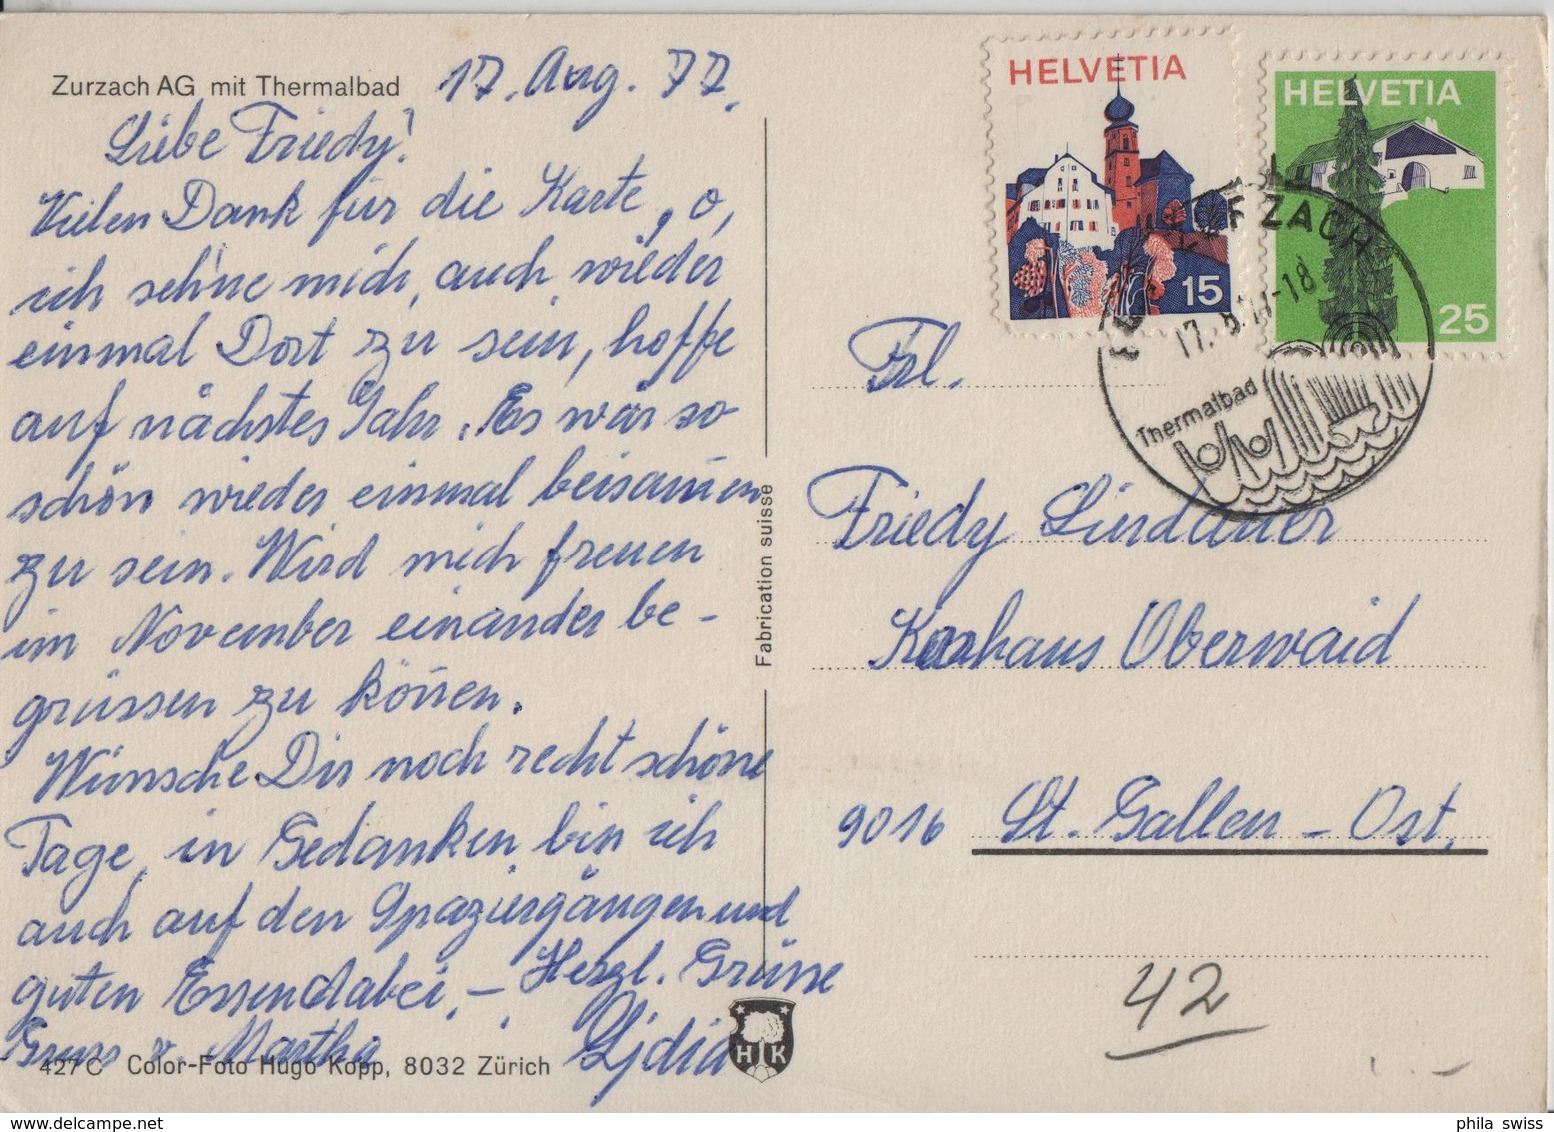 Zurzach AG mit Thermalbad
17. Aug. 77.
Liebe Friedy!
Vielen Dank für die Karte, o,
ich sehne mich, auch wieder
einmal Dort zu sein, hoffe
auf nächstes Jahr. Es wär so
schön wieder einmal beisam̄en
zu sein. Wird mich freuen
im November einander be-
grüssen zu kön̄en.
Wünsche Dir noch recht schöne
Tage, in Gedanken bin ich
auch auf den Spaziergängen und
guten Essen dabei. - Herzl. Grüsse
Gruss v. Martha
Lydia
427 C Color-Foto Hugo Kopp, 8032 Zürich
H K
Fabrication suisse
HELVETIA
15
HELVETIA
25
ZURZACH
17. 8. 77-18
Thermalbad
Frl.
Friedy Lindauer
Kurhaus Oberwaid
9016 St. Gallen - Ost.
42
phila swiss